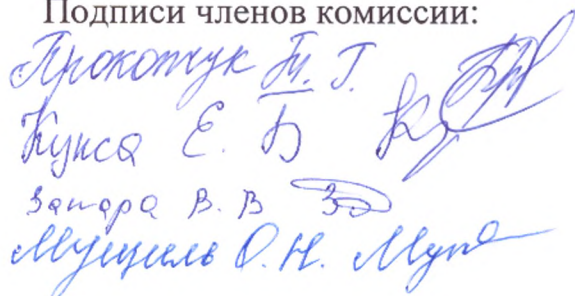 Подписи членов комиссии:
Прокопчук Т. Г.
Кунса Е. Б
Запара В. В
Мущиль О. Н.